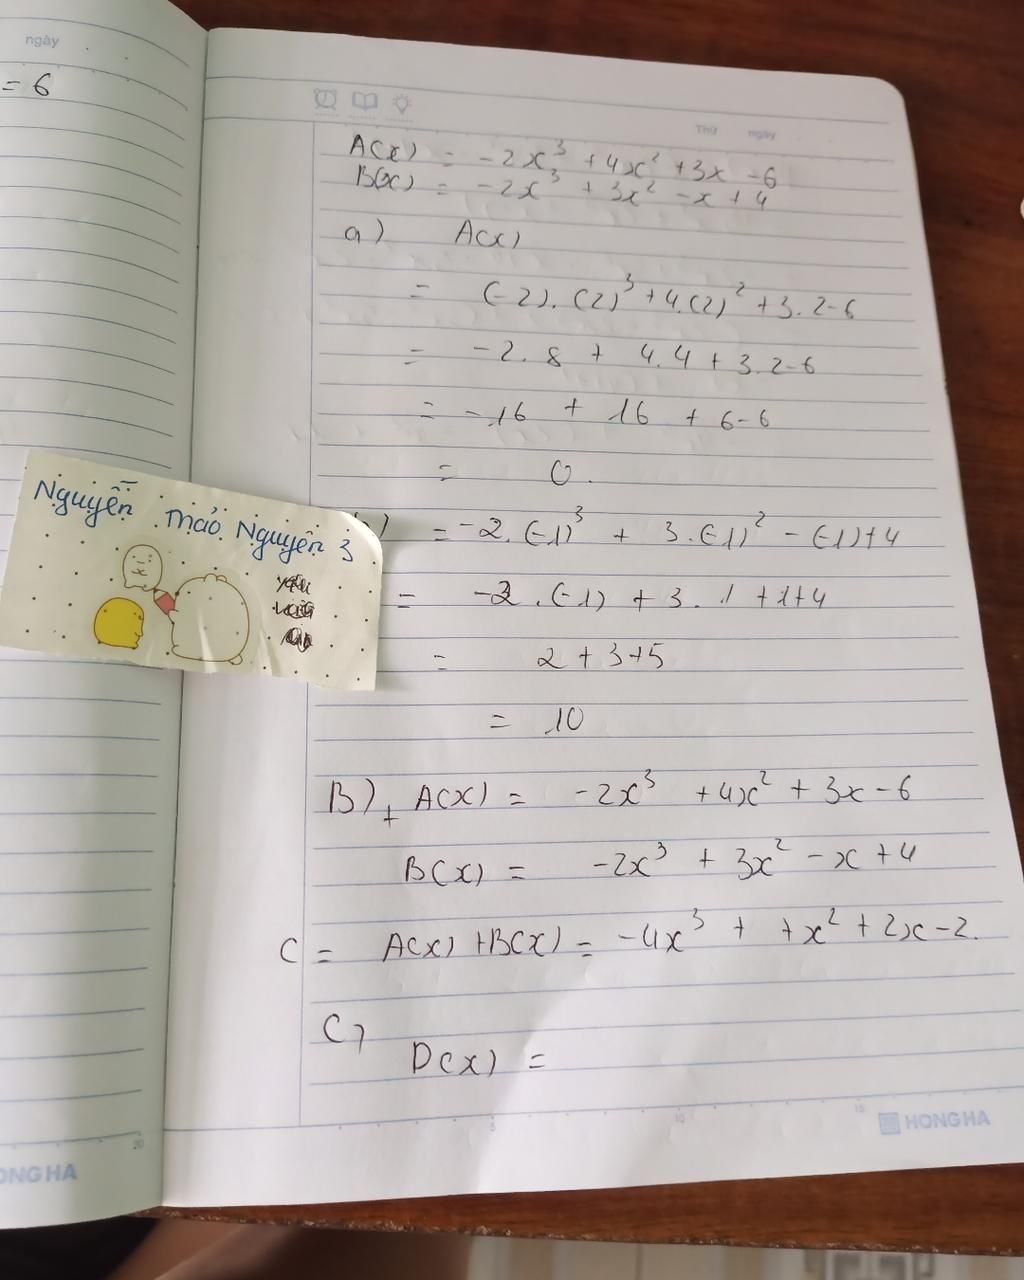 ngày
= 6
Thứ ngày
A(x) = -2x³ + 4x² + 3x - 6
B(x) = -2x³ + 3x² - x + 4
a) A(x)
= (-2). (2)³ + 4.(2)² + 3. 2-6
= -2. 8 + 4.4 + 3. 2-6
= -16 + 16 + 6-6
= 0.
Nguyễn Thảo Nguyên 3
= -2. (-1)³ + 3. (-1)² - (-1)+4
= -2 . (-1) + 3. 1 + 1+4
= 2 + 3+5
= 10
B) + A(x) = -2x³ + 4x² + 3x - 6
B(x) = -2x³ + 3x² - x + 4
C = A(x) + B(x) = -4x³ + +x² + 2x - 2.
C)
D(x) =
5 10 15
HONG HA
20
ONG HA